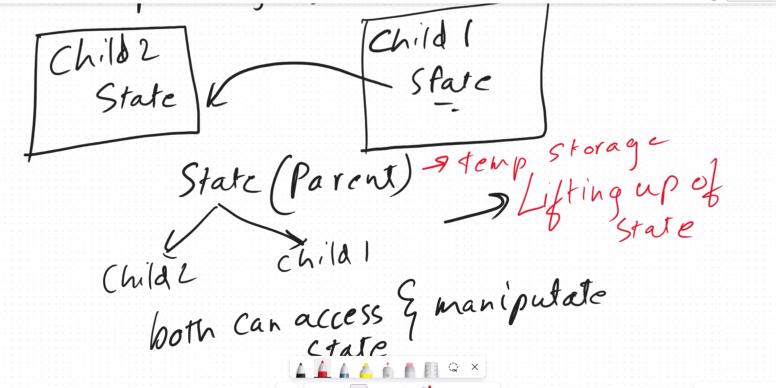 Child 2
State
Child 1
State
State (Parent) → temp storage
→ Lifting up of
state
Child 2
child 1
both can access & manipulate
state